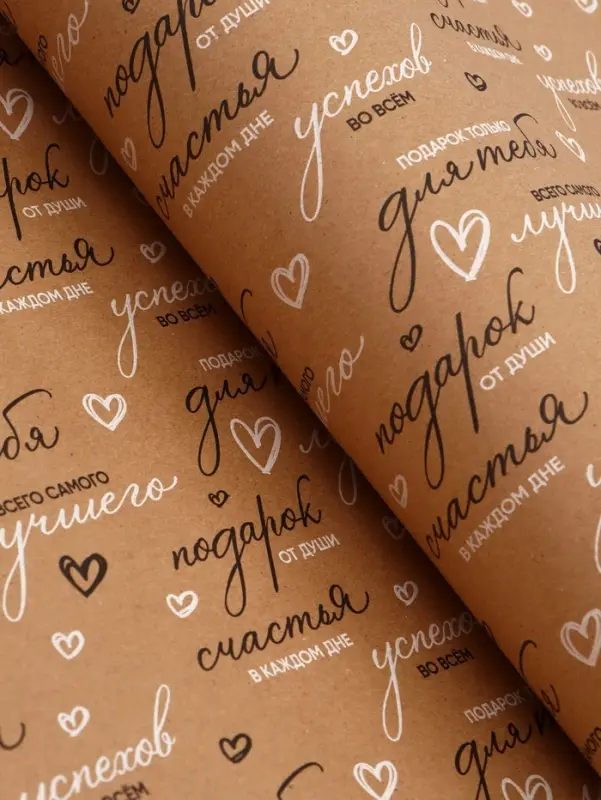 подарок
ОТ ДУШИ
счастья
успехов
ВО ВСЁМ
счастья
В КАЖДОМ ДНЕ
успехов
ВО ВСЁМ
ПОДАРОК ТОЛЬКО
для тебя
ВСЕГО САМОГО
подарок
ОТ ДУШИ
счастья
В КАЖДОМ ДНЕ
ОТ ДУШИ
В КАЖДОМ ДНЕ
успехов
ВО ВСЁМ
ПОДАРОК
для
ВСЕГО САМОГО
лучшего
подарок
ОТ ДУШИ
счастья
В КАЖДОМ ДНЕ
успехов
ВО ВСЁМ
ПОДАРОК
для
успехов
ВО ВСЁМ